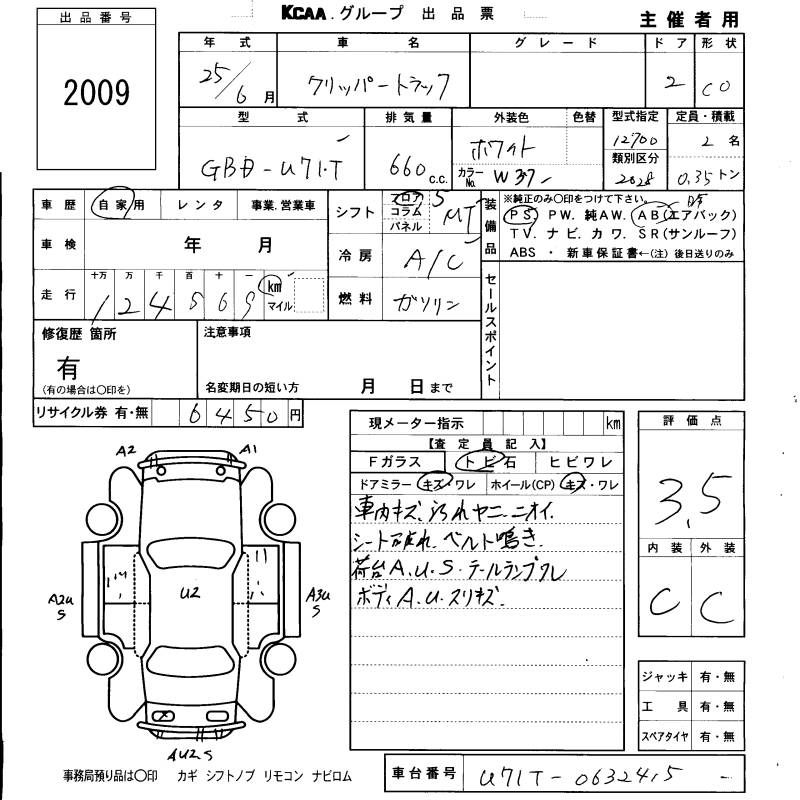 出品番号
2009
KCAA.グループ 出品票
主催者用
年式 車名 グレード ドア 形状
25/6月 クリッパートラック 2 CO
型式 排気量 外装色 色替 型式指定 定員・積載
GBD-U71T 660c.c. ホワイト 12700 2名
カラーNo. W37 類別区分 2028 0.35トン
車歴 自家用 レンタ 事業.営業車
車検 年 月
走行 十万 万 千 百 十 一 km マイル
1 2 4 5 6 9
シフト フロア コラム パネル 5 MT
冷房 A/C
燃料 ガソリン
装備品
※純正のみ〇印をつけて下さい。
PS. PW. 純AW. AB(エアバック)
TV. ナビ. カワ. SR(サンルーフ)
ABS ・ 新車保証書←(注)後日送りのみ
セールスポイント
修復歴 箇所
有
(有の場合は〇印を)
注意事項
名変期日の短い方 月 日まで
リサイクル券 有・無 6450円
現メーター指示 km
【査定員記入】
Fガラス トビ石 ヒビワレ
ドアミラー キズ・ワレ ホイール(CP) キズ・ワレ
車内キズ、汚れヤニ、ニオイ.
シート破れ、ベルト鳴き.
荷台A.U.S.テールランプワレ
ボディA.U.スリキズ.
評価点
3.5
内装 外装
C C
A2 A1
U2
A2U S
A3U S
AU2S
ジャッキ 有・無
工具 有・無
スペアタイヤ 有・無
事務局預り品は〇印 カギ シフトノブ リモコン ナビロム
車台番号 U71T-0632415